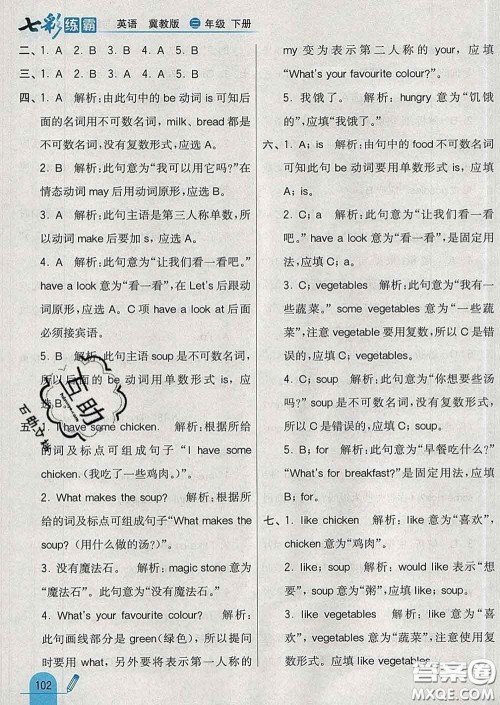 七彩练霸 英语 冀教版 三年级 下册
二、1. A 2. B 3. A 4. B 5. A
三、1. A 2. A 3. B 4. A 5. A
四、1. A 解析:由此句中的 be 动词 is 可知后
面的名词用不可数名词, milk、bread 都是
不可数名词,没有复数形式,应选 A。
2. B 解析:此句意为“我可以用它吗?”在
情态动词 may 后用动词原形,应选 B。
3. A 解析:此句主语是第三人称单数,所
以动词 make 后要加 s,应选 A。
4. A 解析:此句意为“让我们看一看吧。”
have a look 意为“看一看”,在 Let's 后跟动
词原形,应选 A。C 项 have a look at 后面
必须接宾语。
5. B 解析:此句主语 soup 是不可数名词,
所以后面的 be 动词用单数形式 is,应
选 B。
五、1. I have some chicken. 解析:根据所
给的词及标点可组成句子“I have some
chicken.(我吃了一些鸡肉。)
2. What makes the soup? 解析:根据所
给的词及标点可组成句子“What makes the
soup?(用什么做的汤?)
3. 没有魔法石。 解析:magic stone 意为
“魔法石。”此句意为“没有魔法石。”
4. What's your favourite colour? 解析:
此句画线部分是 green(绿色),所以问句
要用 what,另外要将表示第一人称的
my 变为表示第二人称的 your,应填
“What's your favourite colour?”
5. 我饿了。 解析:hungry 意为“饥饿
的”,应填“我饿了”。
六、1. A; is 解析:由句中的 food 不可数名词
可知此句 be 动词要用单数形式 is,应填
A; is。
2. C; a 解析:此句意为“让我们看一
看吧。” have a look 意为“看一看”,是固定用
法,应填 C; a。
3. C; vegetables 解析:此句意为“我有一
些蔬菜。” some vegetables 意为“一些蔬
菜”,注意 vegetable 要用复数,所以 C 是错
误的,应填 C; vegetables。
4. C; soup 解析:此句意为“你想要些汤
吗?” soup 是不可数名词,没有复数形式,
所以 C 是错误的,应填 C; soup。
5. B; for 解析:此句意为:“早餐吃什么?”
“What's for breakfast?”是固定用法,应填
B; for。
七、1. like chicken 解析:like 意为“喜欢”,
chicken 意为“鸡肉”。
2. like; soup 解析:would like 意为“想要”,
soup 意为“粥”,应填 like; soup。
3. like vegetables 解析:like 意为“喜
欢”,vegetables 意为“蔬菜”,注意要用复数
形式,应填 like vegetables。
102
互助
互助文档
答案圈
MXQE.COM